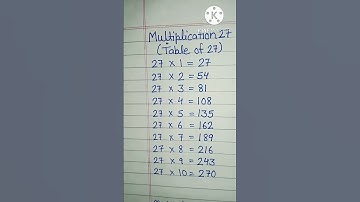 Multiplication 27
(Table of 27)
27 × 1 = 27
27 × 2 = 54
27 × 3 = 81
27 × 4 = 108
27 × 5 = 135
27 × 6 = 162
27 × 7 = 189
27 × 8 = 216
27 × 9 = 243
27 × 10 = 270